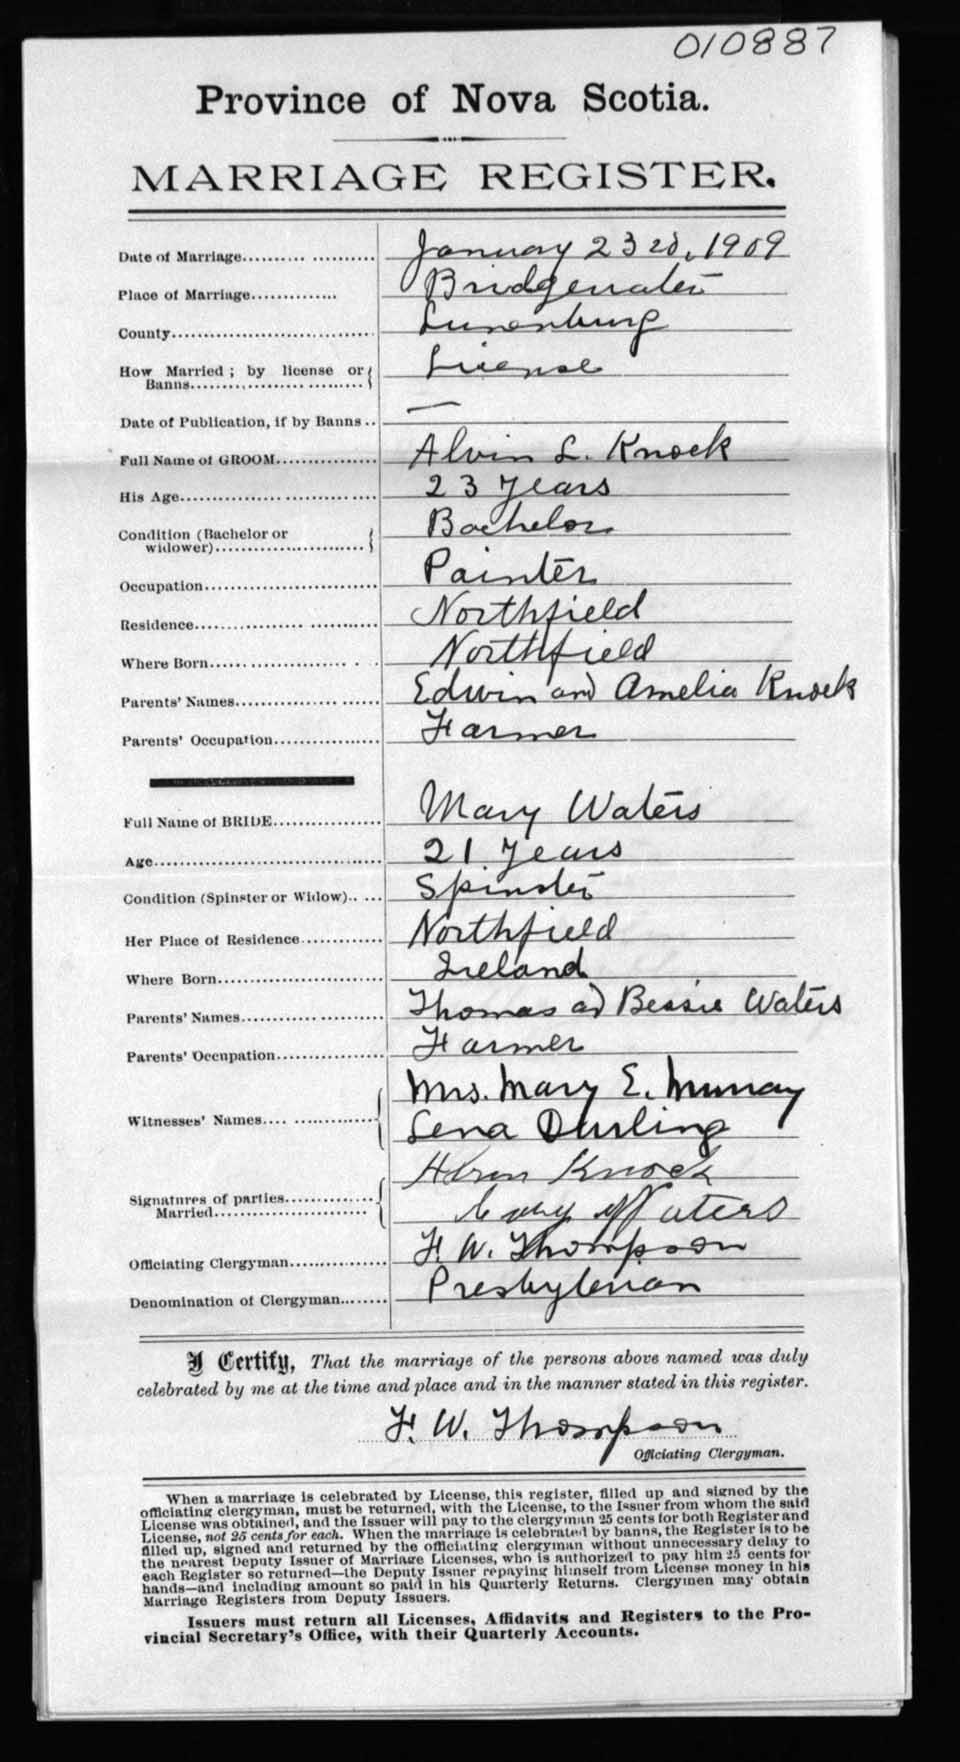 010887
Province of Nova Scotia.
MARRIAGE REGISTER.
Date of Marriage.................... January 23rd, 1909
Place of Marriage.............. Bridgewater
County............................. Lunenburg
How Married; by license or Banns........................ License
Date of Publication, if by Banns .. —
Full Name of GROOM............... Alvin L. Knock
His Age............................. 23 years
Condition (Bachelor or widower)........................ Bachelor
Occupation......................... Painter
Residence.......................... Northfield
Where Born..................... . . Northfield
Parents' Names...................... Edwin and Amelia Knock
Parents' Occupation................ Farmer
Full Name of BRIDE................. Mary Waters
Age................................. 21 years
Condition (Spinster or Widow)..... Spinster
Her Place of Residence............. Northfield
Where Born......................... Ireland
Parents' Names..................... Thomas ad Bessie Waters
Parents' Occupation................ Farmer
Witnesses' Names.... ............. Mrs. Mary E. Murray
Lena Durling
Signatures of parties Married........................ Knock
Waters
Officiating Clergyman............... F. W. Thompson
Denomination of Clergyman........ Presbyterian
I Certify, That the marriage of the persons above named was duly
celebrated by me at the time and place and in the manner stated in this register.
F. W. Thompson
Officiating Clergyman.
When a marriage is celebrated by License, this register, filled up and signed by the
officiating clergyman, must be returned, with the License, to the Issuer from whom the said
License was obtained, and the Issuer will pay to the clergyman 25 cents for both Register and
License, not 25 cents for each. When the marriage is celebrated by banns, the Register is to be
filled up, signed and returned by the officiating clergyman without unnecessary delay to
the nearest Deputy Issuer of Marriage Licenses, who is authorized to pay him 25 cents for
each Register so returned—the Deputy Issuer repaying himself from License money in his
hands—and including amount so paid in his Quarterly Returns. Clergymen may obtain
Marriage Registers from Deputy Issuers.
Issuers must return all Licenses, Affidavits and Registers to the Pro-
vincial Secretary's Office, with their Quarterly Accounts.